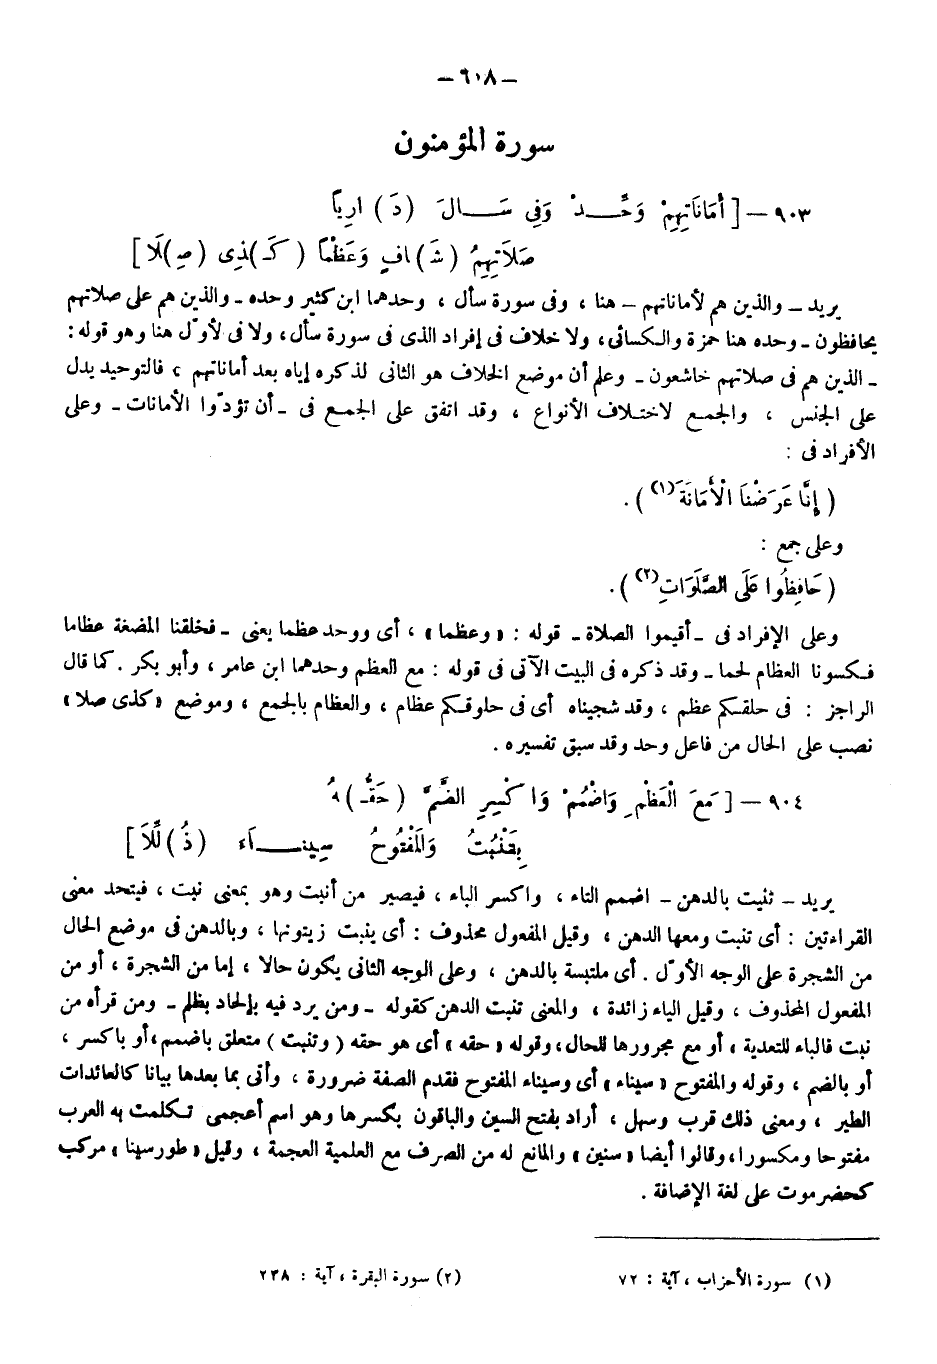 — ٦٠٨ —
سورة المؤمنون
٩٠٣ — [ أَمَانَاتِهِمْ وَحِّدْ وَفِي سَالَ (دَ) ارِياً
صَلَاتِهِمُ (شَ)افٍ وَعَظْماً (كَـ)ذِى (صِ)لَا ]
يريد ـ والذين هم لأماناتهم ـ هنا ، وفى سورة سأل ، وحدهما ابن كثير وحده ـ والذين هم على صلاتهم
يحافظون ـ وحده هنا حمزة والكسائى، ولا خلاف فى إفراد الذى فى سورة سأل، ولا فى لأول هنا وهو قوله :
ـ الذين هم فى صلاتهم خاشعون ـ وعلم أن موضع الخلاف هو الثانى لذكره إياه بعد أماناتهم ، فالتوحيد يدل
على الجنس ، والجمع لاختلاف الأنواع ، وقد اتفق على الجمع فى ـ أن تؤدّوا الأمانات ـ وعلى
الأفراد فى :
( إِنَّا عَرَضْنَا الْأَمَانَةَ (١) ) .
وعلى جمع :
( حَافِظُوا عَلَى الصَّلَوَاتِ (٢) ) .
وعلى الإفراد فى ـ أقيموا الصلاة ـ قوله : « وعظما » ، أى ووحد عظما يعنى ـ فخلقنا المضغة عظاما
فكسونا العظام لحما ـ وقد ذكره فى البيت الآتى فى قوله : مع العظم وحدهما ابن عامر ، وأبو بكر . كما قال
الراجز : فى حلقكم عظم ، وقد شجيناه أى فى حلوقكم عظام ، والعظام بالجمع ، وموضع « كذى صلا »
نصب على الحال من فاعل وحد وقد سبق تفسيره .
٩٠٤ — [ مَعَ الْعَظْمِ وَاضْمُمْ وَاكْسِرِ الضَّمَّ (حَقُّـ)هُ
بِتَنْبُتُ وَالْمَفْتُوحُ سِينَاءَ (ذُ)لِّلَا ]
يريد ـ تنبت بالدهن ـ اضمم التاء ، واكسر الباء ، فيصير من أنبت وهو بمعنى نبت ، فيتحد معنى
القراءتين : أى تنبت ومعها الدهن ، وقيل المفعول محذوف : أى ينبت زيتونها ، وبالدهن فى موضع الحال
من الشجرة على الوجه الأول . أى ملتبسة بالدهن ، وعلى الوجه الثانى يكون حالا ، إما من الشجرة ، أو من
المفعول المحذوف ، وقيل الياء زائدة ، والمعنى تنبت الدهن كقوله ـ ومن يرد فيه بإلحاد بظلم ـ ومن قرأه من
نبت فالباء للتعدية ، أو مع مجرورها للحال، وقوله « حقه » أى هو حقه ( وتنبت ) متعلق باضمم ، أو باكسر ،
أو بالضم ، وقوله والمفتوح « سيناء » أى وسيناء المفتوح فقدم الصفة ضرورة ، وأتى بما بعدها بيانا كالعائذات
الطير ، ومعنى ذلك قرب وسهل ، أراد بفتح السين والباقون بكسرها وهو اسم أعجمى تكلمت به العرب
مفتوحا ومكسورا، وقالوا أيضا « سنين » والمانع له من الصرف مع العلمية العجمة ، وقيل « طورسينا » مركب
كحضرموت على لغة الإضافة .
(١) سورة الأحزاب ، آية : ٧٢ (٢) سورة البقرة ، آية : ٢٣٨